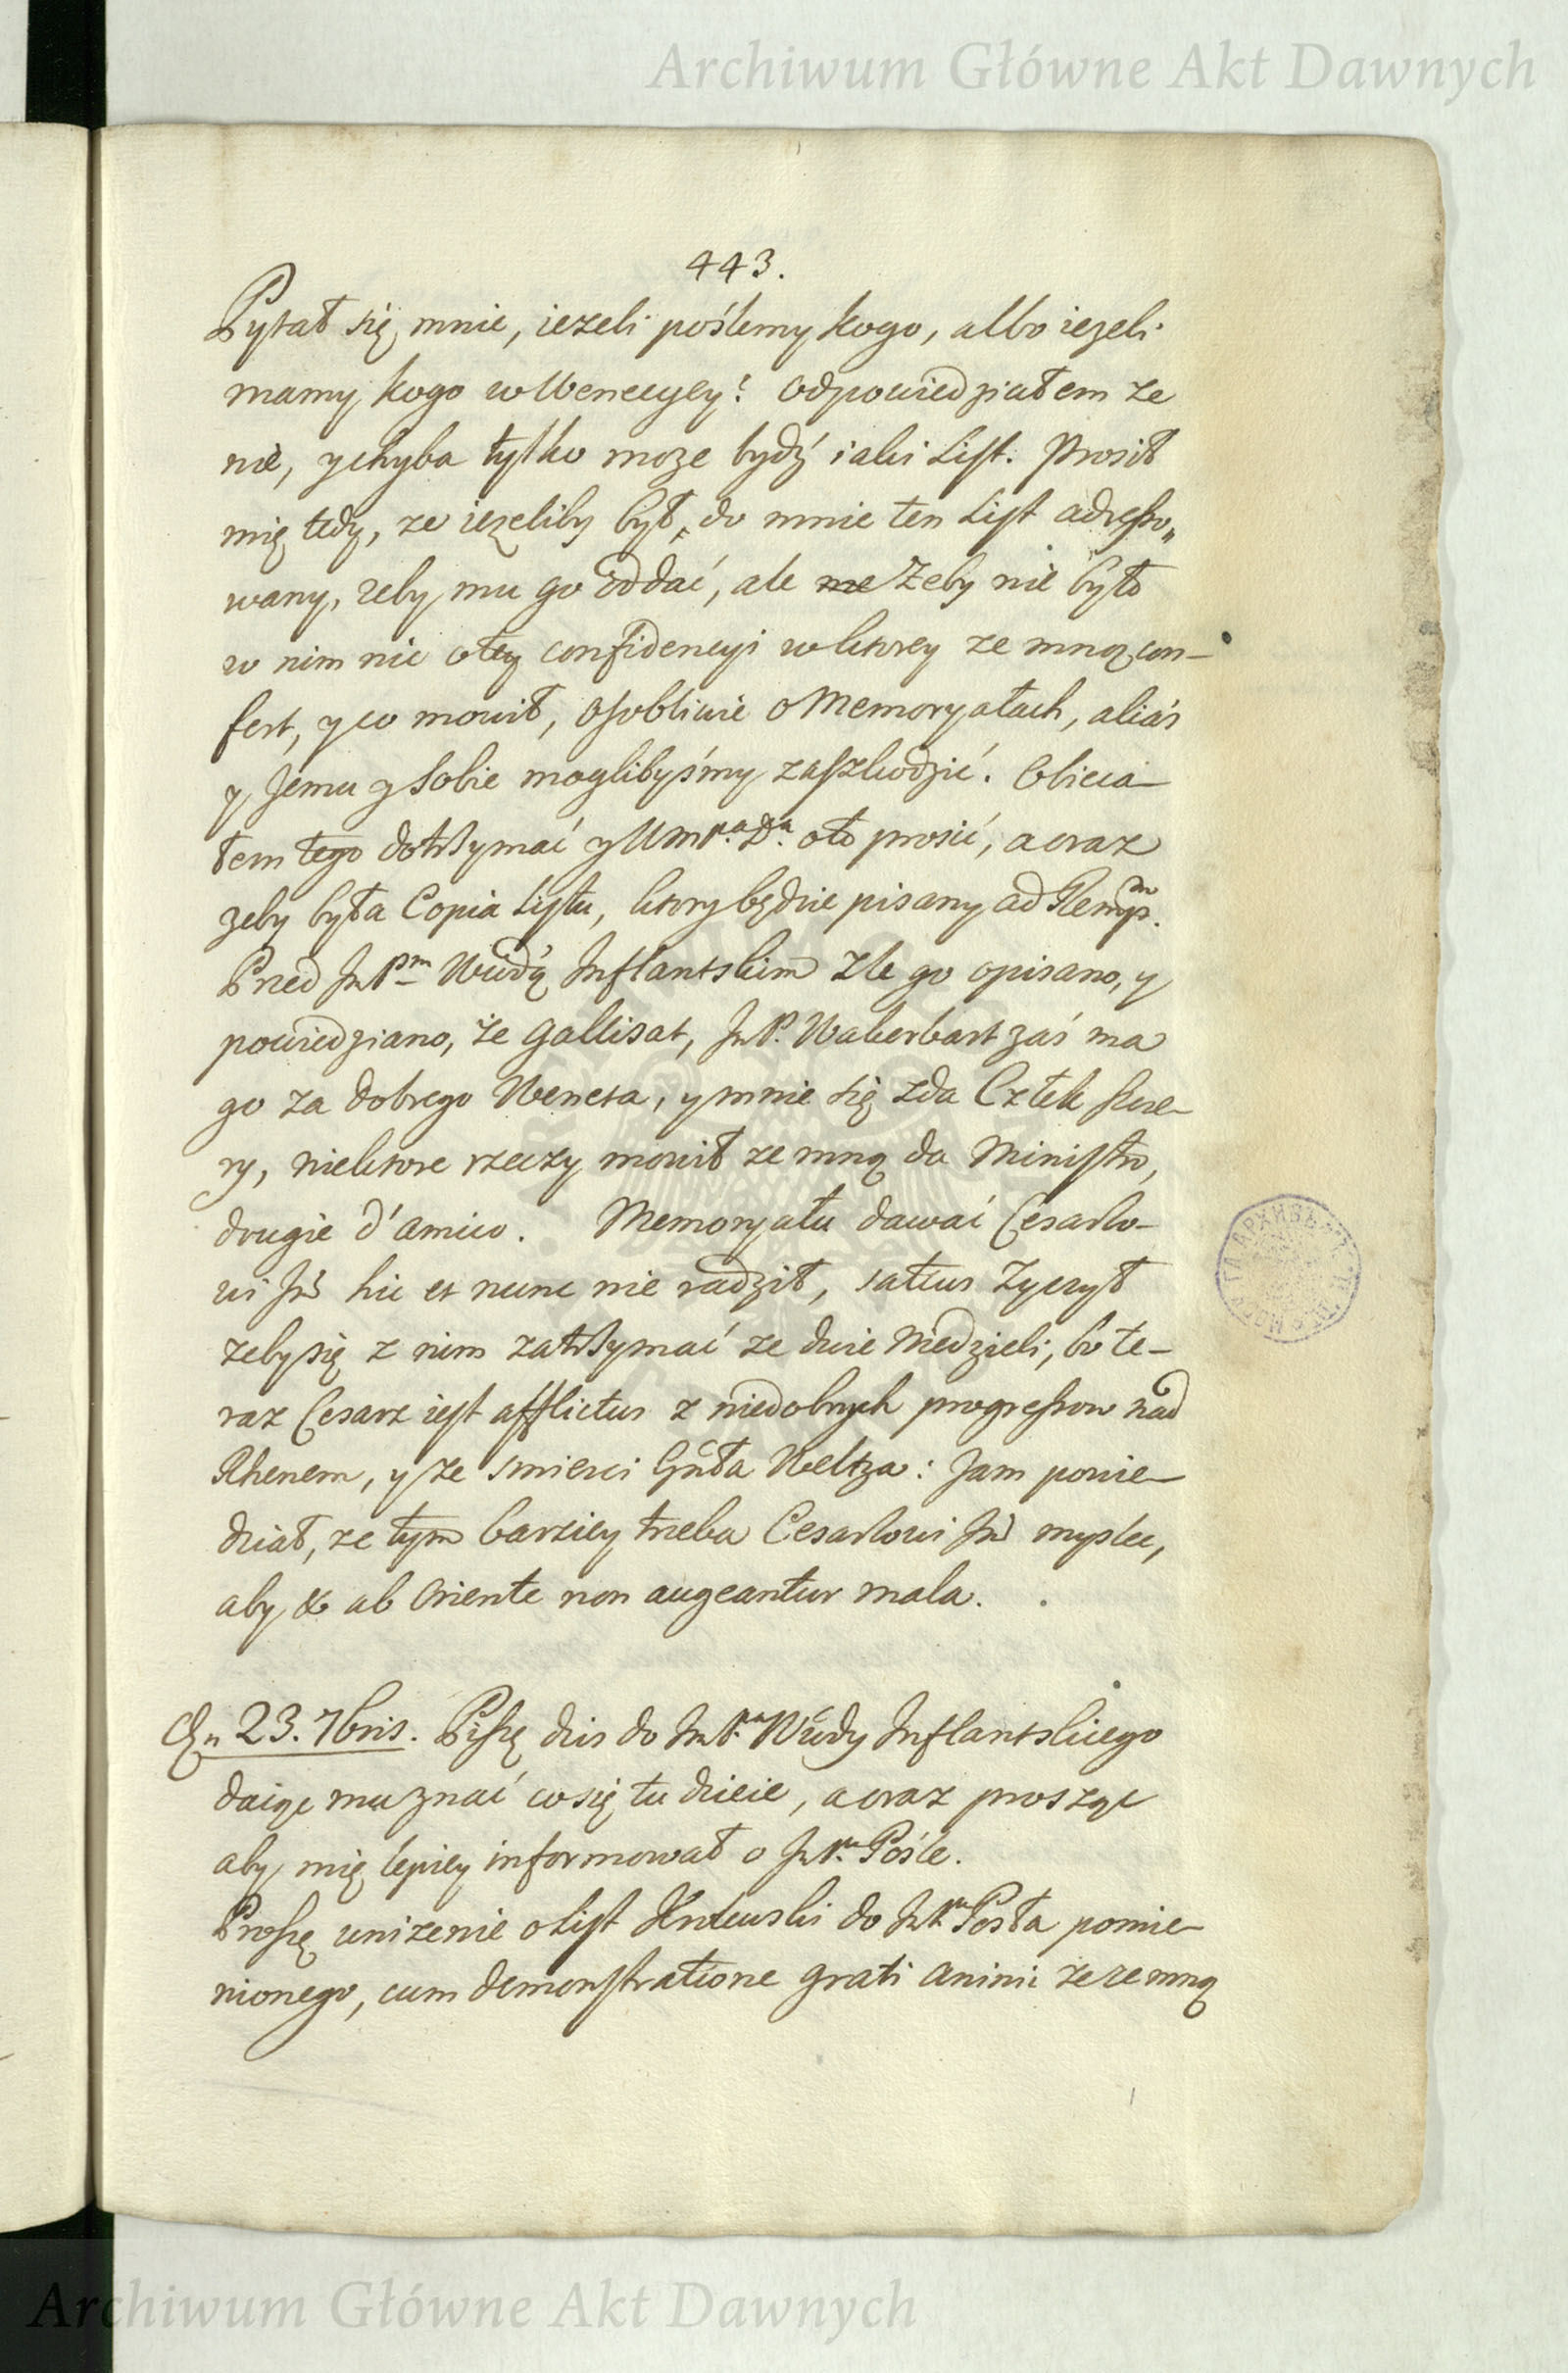 Archiwum Główne Akt Dawnych
443.
Pytał się mnie, ieżeli poślemy kogo, albo ieżeli
mamy kogo w Wenecyey? odpowiedziałem że
nie, y chyba tylko może bydź iaki List. Prosił
mię tedy, że ieżeliby był, do mnie ten List adresso„
wany, żeby mu go oddać, ale żeby nie było
w nim nic o tey confidencyi w ktorey ze mną con-
fert, y co mowił, osobliwie o Memoryałach, aliàs
y Jemu y Sobie moglibyśmy zaszkodzić. Obieca-
łem tego dotrzymać y WmPa Da o to prosić, a oraz
żeby była Copia Listu, ktory będzie pisany ad Remp.
Przed JmPm Wwdą Inflantskim zle go opisano, y
powiedziano, że Gallisat, JmP. Wakerbart zaś ma
go za dobrego Weneta, y mnie się zda Człek szcze-
ry, niektore rzeczy mowił ze mną da Ministro,
drugie d'amico. Memoryału dawać Cesarzo-
wi Jmś hic et nunc nie radził, satius życzył
żeby się z nim zatrzymać ze dwie Niedzieli, bo te-
raz Cesarz iest afflictus z niedobrych progressow nad
Rhenem, y ze smierci Gnła Veltza: Jam powie-
dział, że tym barziey trzeba Cesarzowi Jmś myslec,
aby & ab Oriente non augeantur mala.
23. 7bris. Piszę dzis do JmPa Wwdy Inflantskiego
daiąc mu znać co się tu dzieie, a oraz prosząc
aby mię lepiey informował o JmPu Pośle.
Proszę unizenie o List Krolewski do JmPa Posła pomie-
nionego, cum demonstratione grati animi że ze mną
Archiwum Główne Akt Dawnych